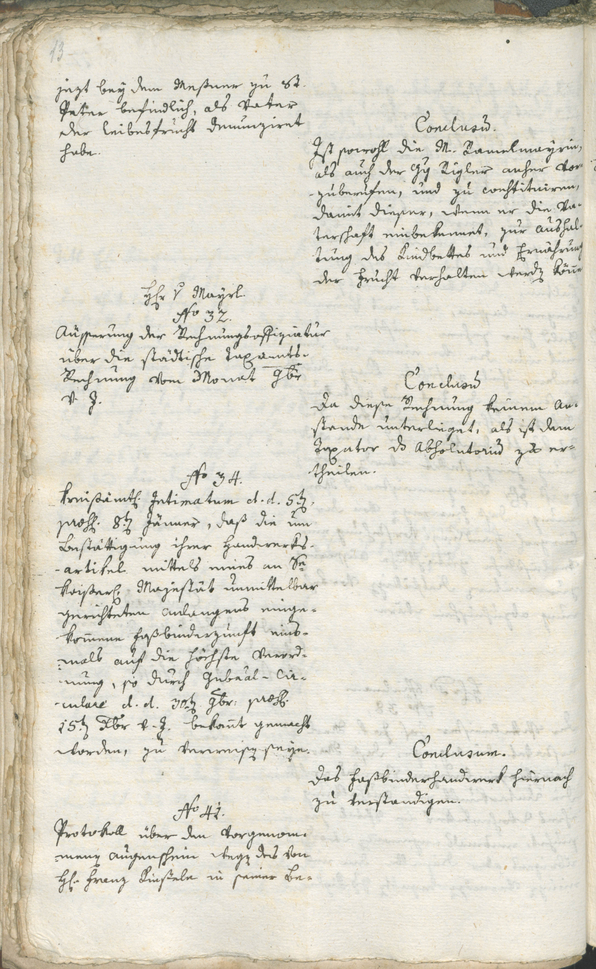 13
jezt bey dem Meßner zu St.
Peter befindlich, als Vater
der Leibesfrucht denunziret
habe.
Conclusũ.
Ist sowohl die M. Ramelmayrin,
als auch der Rigler anher vor-
zuberufen, und zu constituiren,
damit dieser, wenn er die Va-
terschaft einbekennet, zur Aushal-
tung des Kindbettes und Ernährung
der Frucht verhalten werdẽ könne
Hr. v. Mayrl
No 32.
Äusserung der Rechnungsoffiziatur
über die städtische Taxamts-
Rechnung vom Monat 9br
v. J.
Conclusũ
Da diese Rechnung keinem An-
stande unterlieget, als ist dem
Taxator das Absolutoriũ zu er-
theilen.
No 34.
Kreisämtl. Intimatum d. d. 5tẽ,
praes. 8tẽ Jänner, daß die um
Bestättigung ihrer Handwerks-
-artikel mittels eines an Se
Kaiserl. Majestät unmittelbar
gerichteten Anlangens einge-
kom̃ene Faßbinderzunft eins-
mals auf die höchste Verord-
nung, so durch Gubr̃ial-Cir-
-culare d. d. 30tẽ 9br: praes.
15tẽ Xbr v. J. bekañt gemacht
worden, zu verweisẽ seye.
Conclusum.
Das Faßbinderhandwerk hiernach
zu verständigen.
No 41.
Protokoll über den vorgenom-
menẽ Augenschein wegẽ des von
Hr. Franz Kinsele in seiner Be-